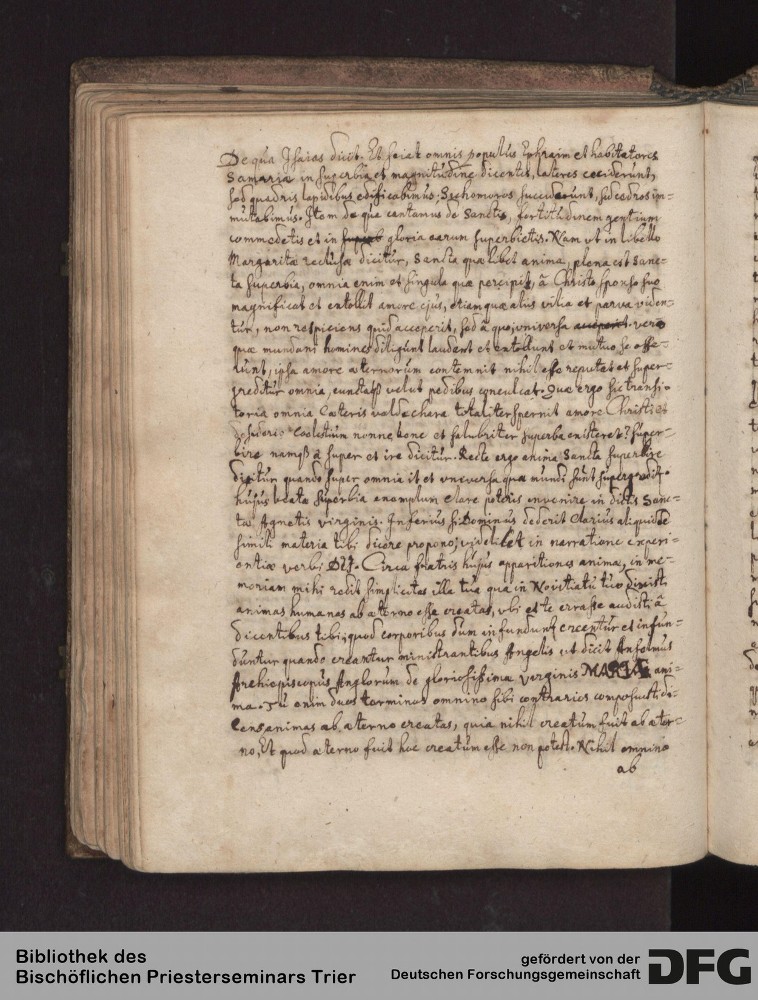 De qua Isaias dicit. Et sciet omnis populus Ephraim et habitatores
Samariæ in superbia et magnitudine dicentes, lateres ceciderunt,
sed quadris lapidibus edificabimus, Sychomoros succiderunt, sed cedros im-
mutabimus. Item de qua cantamus de Sanctis, fortitudinem gentium
commedetis et in gloria earum superbietis. Nam ut in libello
Margaritæ reclusæ dicitur, Sancta quælibet anima, plena est Sanc-
ta superbia, omnia enim et singula quæ percipit, à Christo sponso suo
magnificat et entollit amore ejus, etiam quæ aliis vilia et parva viden-
tur, non respiciens quid acceperit, sed à quo, universa vero
quæ mundani homines diligunt laudant et entollunt et mutuo se offe-
runt, ipsa amore æternorum contemnit nihil esse reputat et super-
greditur omnia, cunctaqz velut pedibus conculcat. Quæ ergo sic transi-
toria omnia cæteris valde chara totaliter spernit amore Christi et
desiderio coelestium nonne bene et salubriter superba existeret? super-
bire namqz à super et ire dicitur. Recte ergo anima Sancta superbire
dicitur quando super omnia it et universa quæ mundi sunt supergreditur
hujus beatæ superbiæ exemplum clare poteris invenire in dictis Sanc-
tæ Agnetis virginis. Inferius si Dominus dederit clarius aliquid de
simili materia tibi dicere propono, videlicet in narratione experi-
entiæ verbi DEI. Circa fratris hujus apparitiones animæ, in me-
moriam mihi redit simplicitas illa tua qua in Novitiatu tuo dixisti
animas humanas ab æterno esse creatas, ubi et te errasse audisti à
dicentibus tibi, quod corporibus dum infundunt creentur et infun-
duntur quando creantur ministrantibus Angelis ut dicit Anselmus
Archiepiscopus Anglorum de gloriosissimæ virginis MARIÆ ani-
ma. Tu enim duos terminos omnino sibi contrarios composuisti di-
cens animas ab æterno creatas, quia nihil creatum fuit ab æter-
no, Et quod æterno fuit hoc creatum esse non potest. Nihil omnino
ab
Bibliothek des
Bischöflichen Priesterseminars Trier
gefördert von der
Deutschen Forschungsgemeinschaft
DFG